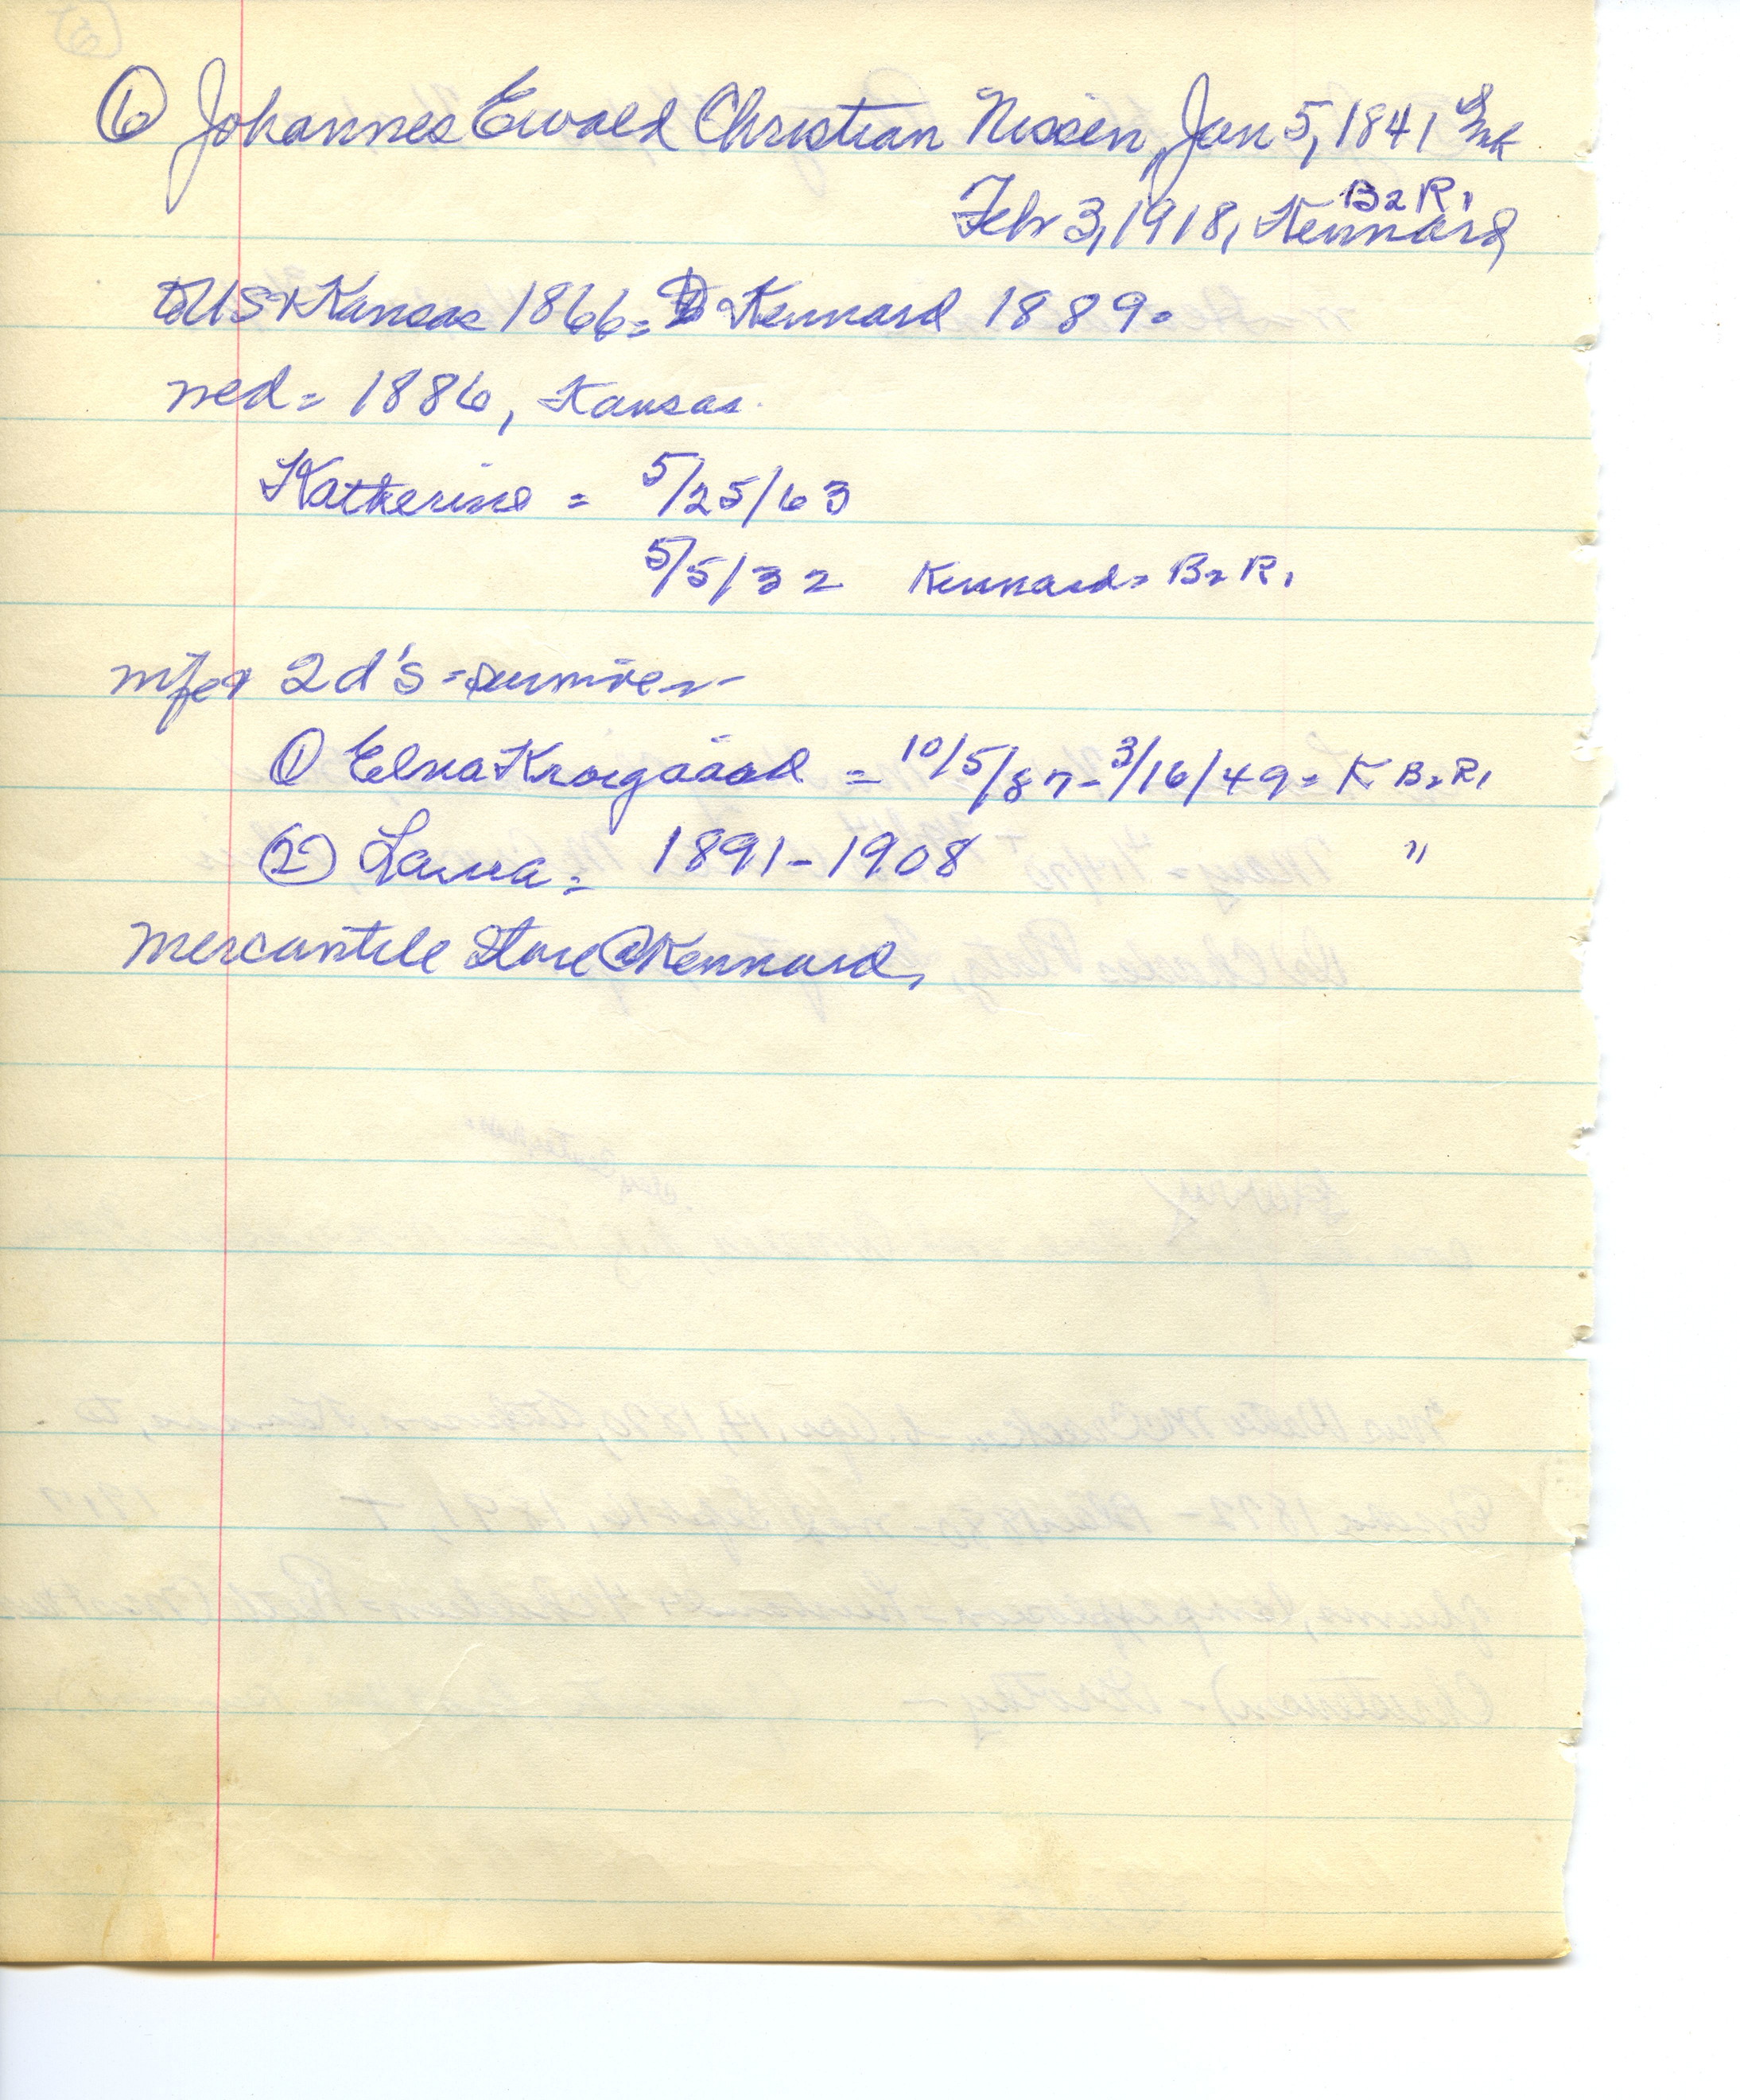 ⑥ Johannes Ewald Christian Nissen, Jan 5, 1841
B2 R1
Feb 3, 1918, Kennard,
to US + Kansas 1866 = Kennard 1889.
med = 1886, Kansas.
Katherine = 5/25/63
5/5/32 Kennard = B2 R1
2 d's =
① Elna = 10/5/87 - 3/16/49 = K B2 R1
② Laura = 1891 - 1908 "
Mercantile Store @ Kennard,